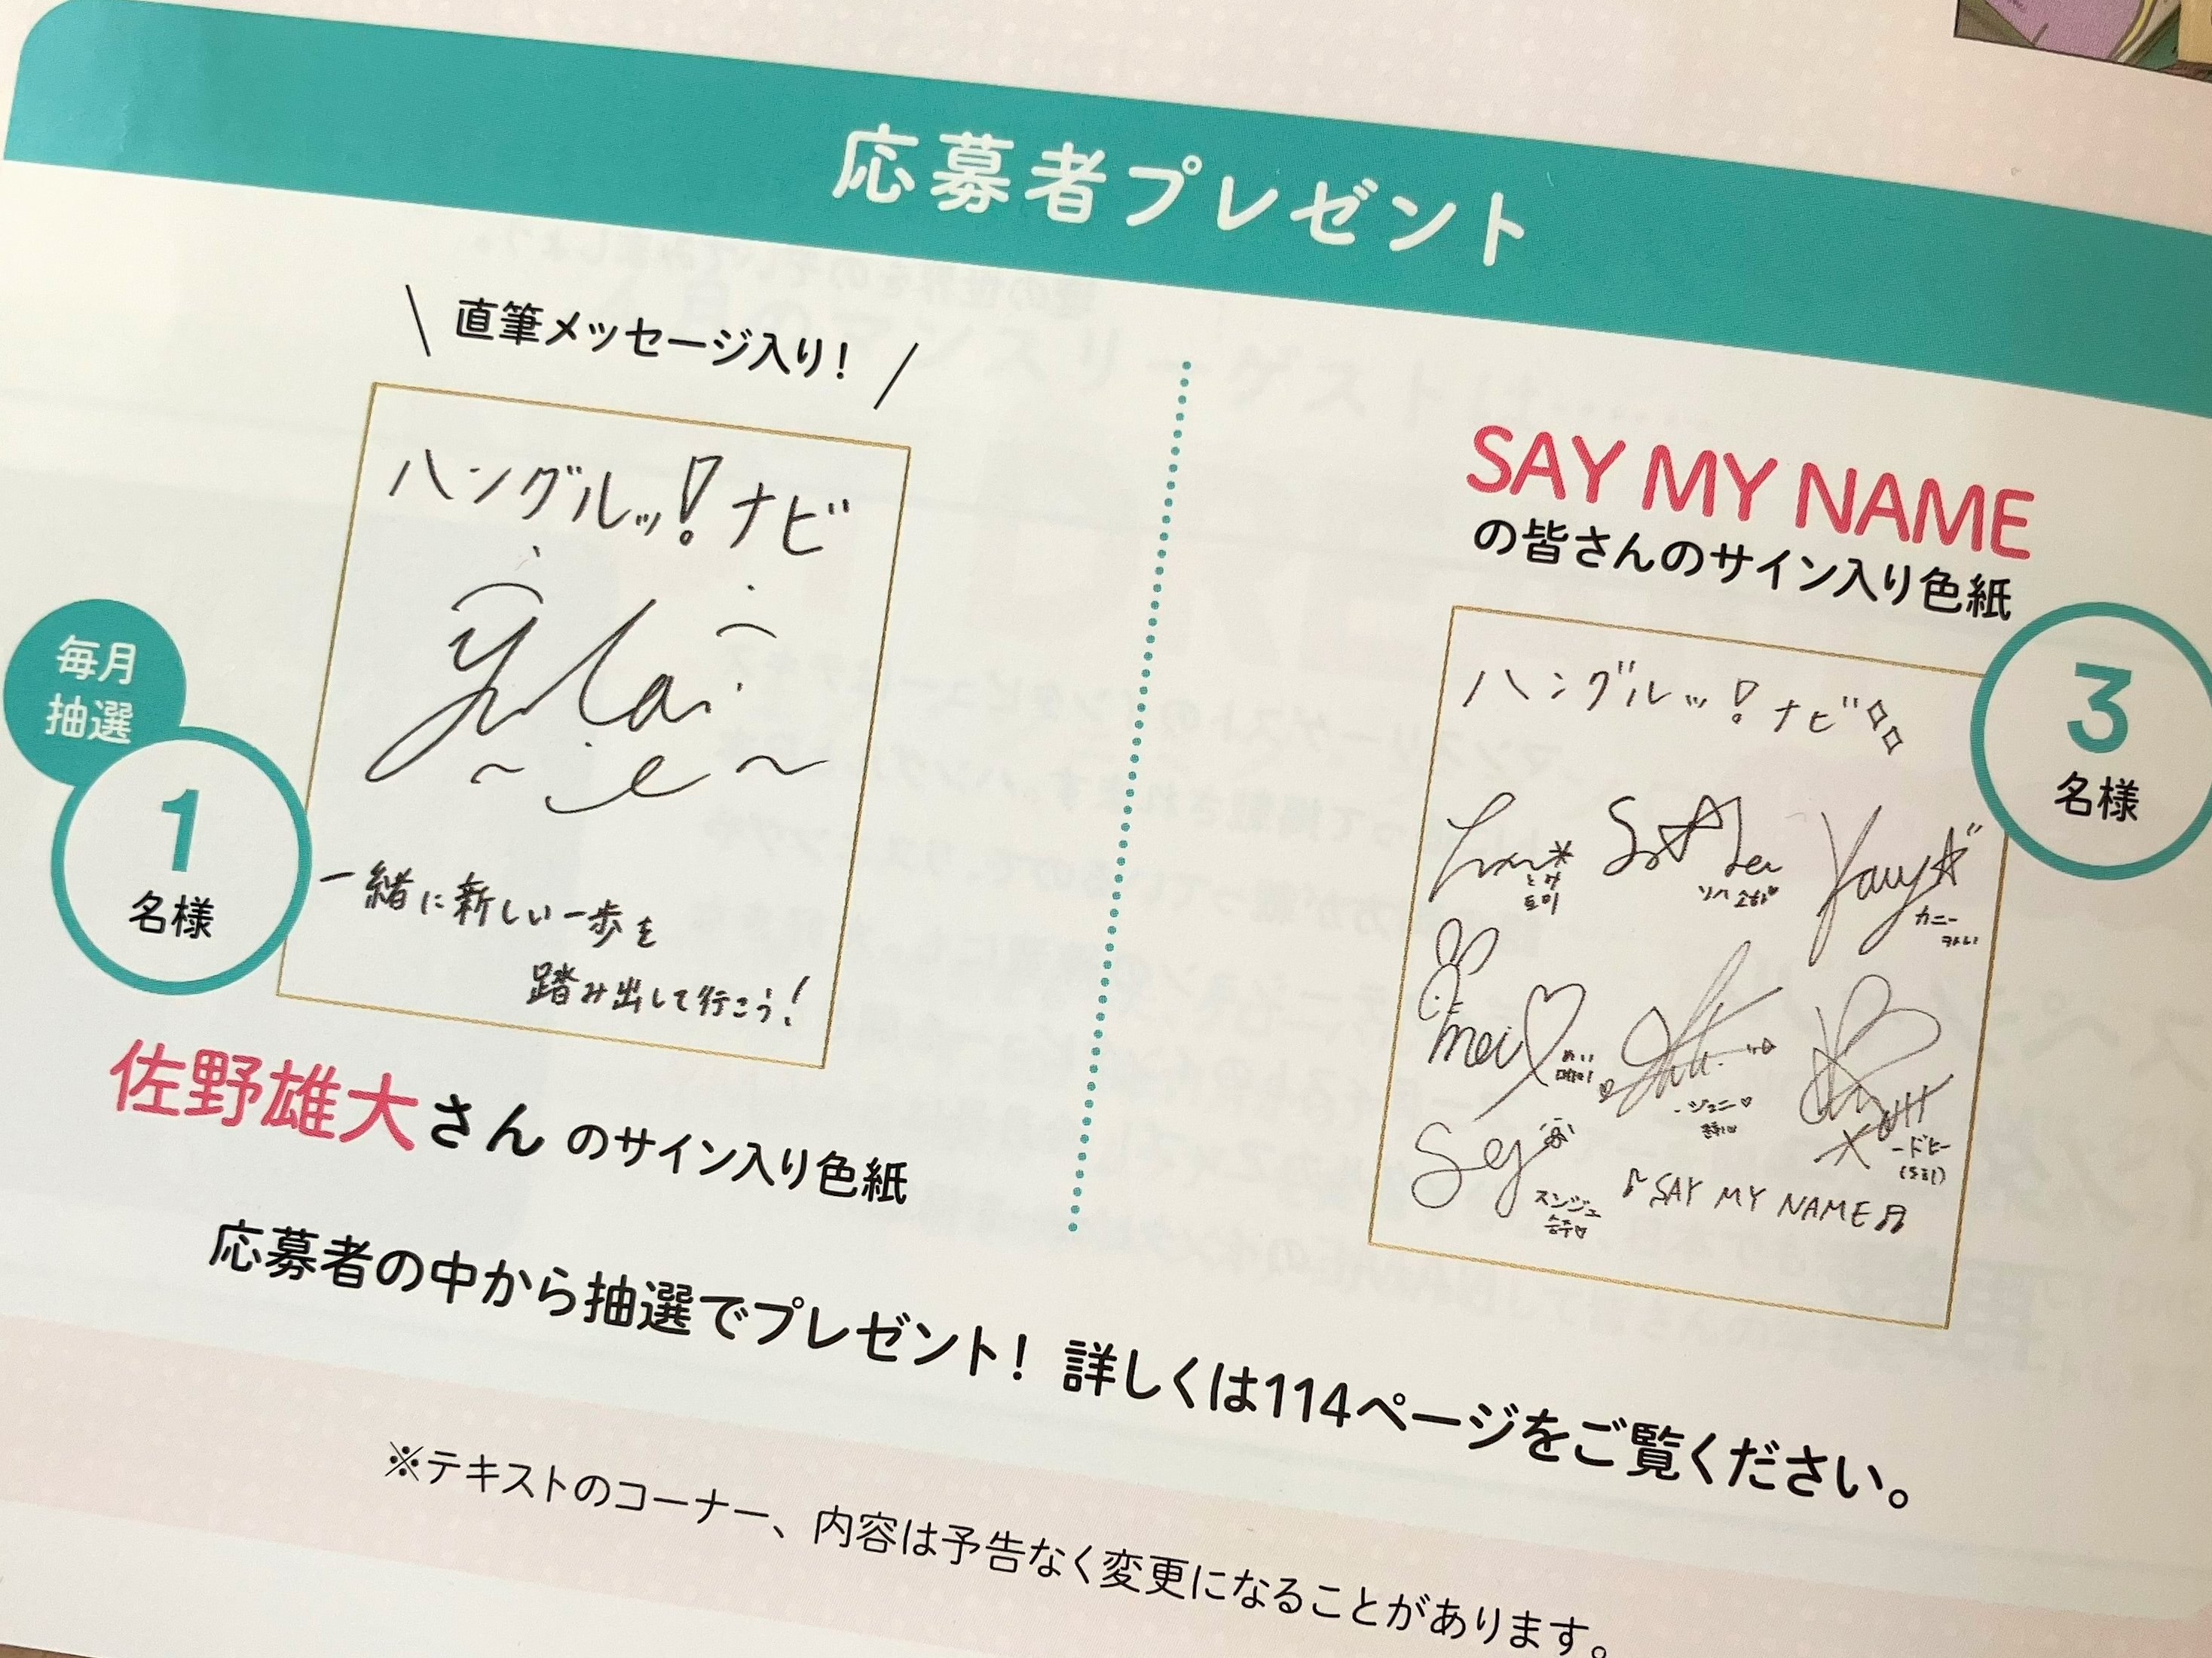 応募者プレゼント
直筆メッセージ入り!
ハングルッ!ナビ
一緒に新しい一歩を
踏み出して行こう!
毎月
抽選
1
名様
佐野雄大さん のサイン入り色紙
SAY MY NAME
の皆さんのサイン入り色紙
3
名様
ハングルッ!ナビ
ソハ
カニー
mei
めい
ジュニ
ドヒ
スンジュ
SAY MY NAME
応募者の中から抽選でプレゼント! 詳しくは114ページをご覧ください。
※テキストのコーナー、内容は予告なく変更になることがあります。